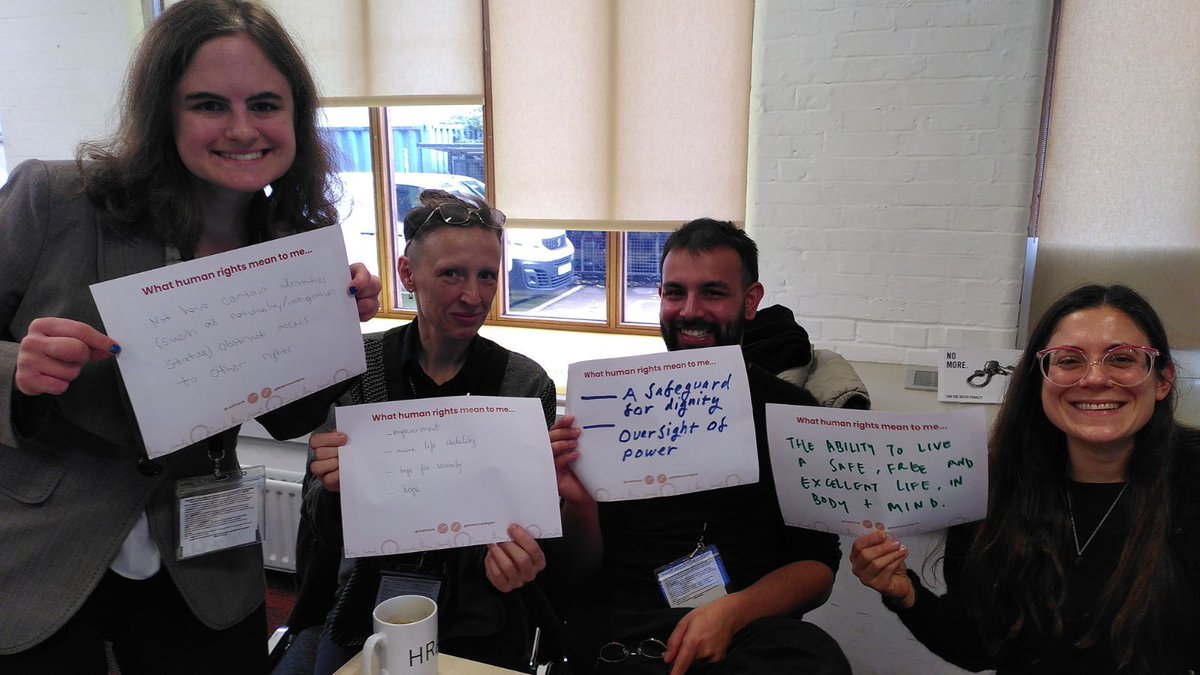 What human rights mean to me...
Not have certain identities
(such as nationality/immigration
status) obstruct access
to other rights
What human rights mean to me...
- empowerment
- more life stability
- hope for security
- hope
What human rights mean to me...
A safeguard
for dignity
Oversight of
power
What human rights mean to me...
THE ABILITY TO LIVE
A SAFE, FREE AND
EXCELLENT LIFE, IN
BODY + MIND.
NO
MORE.
END THE DEATH PENALTY